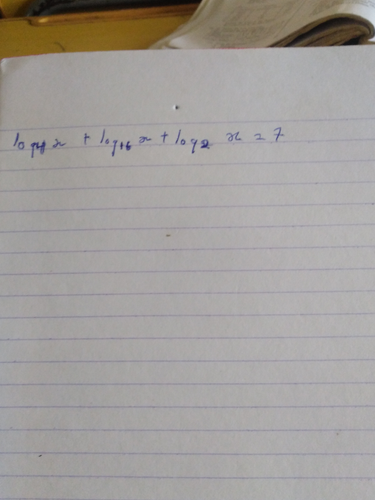 log x + log₁₆ x + log₂ x = 7